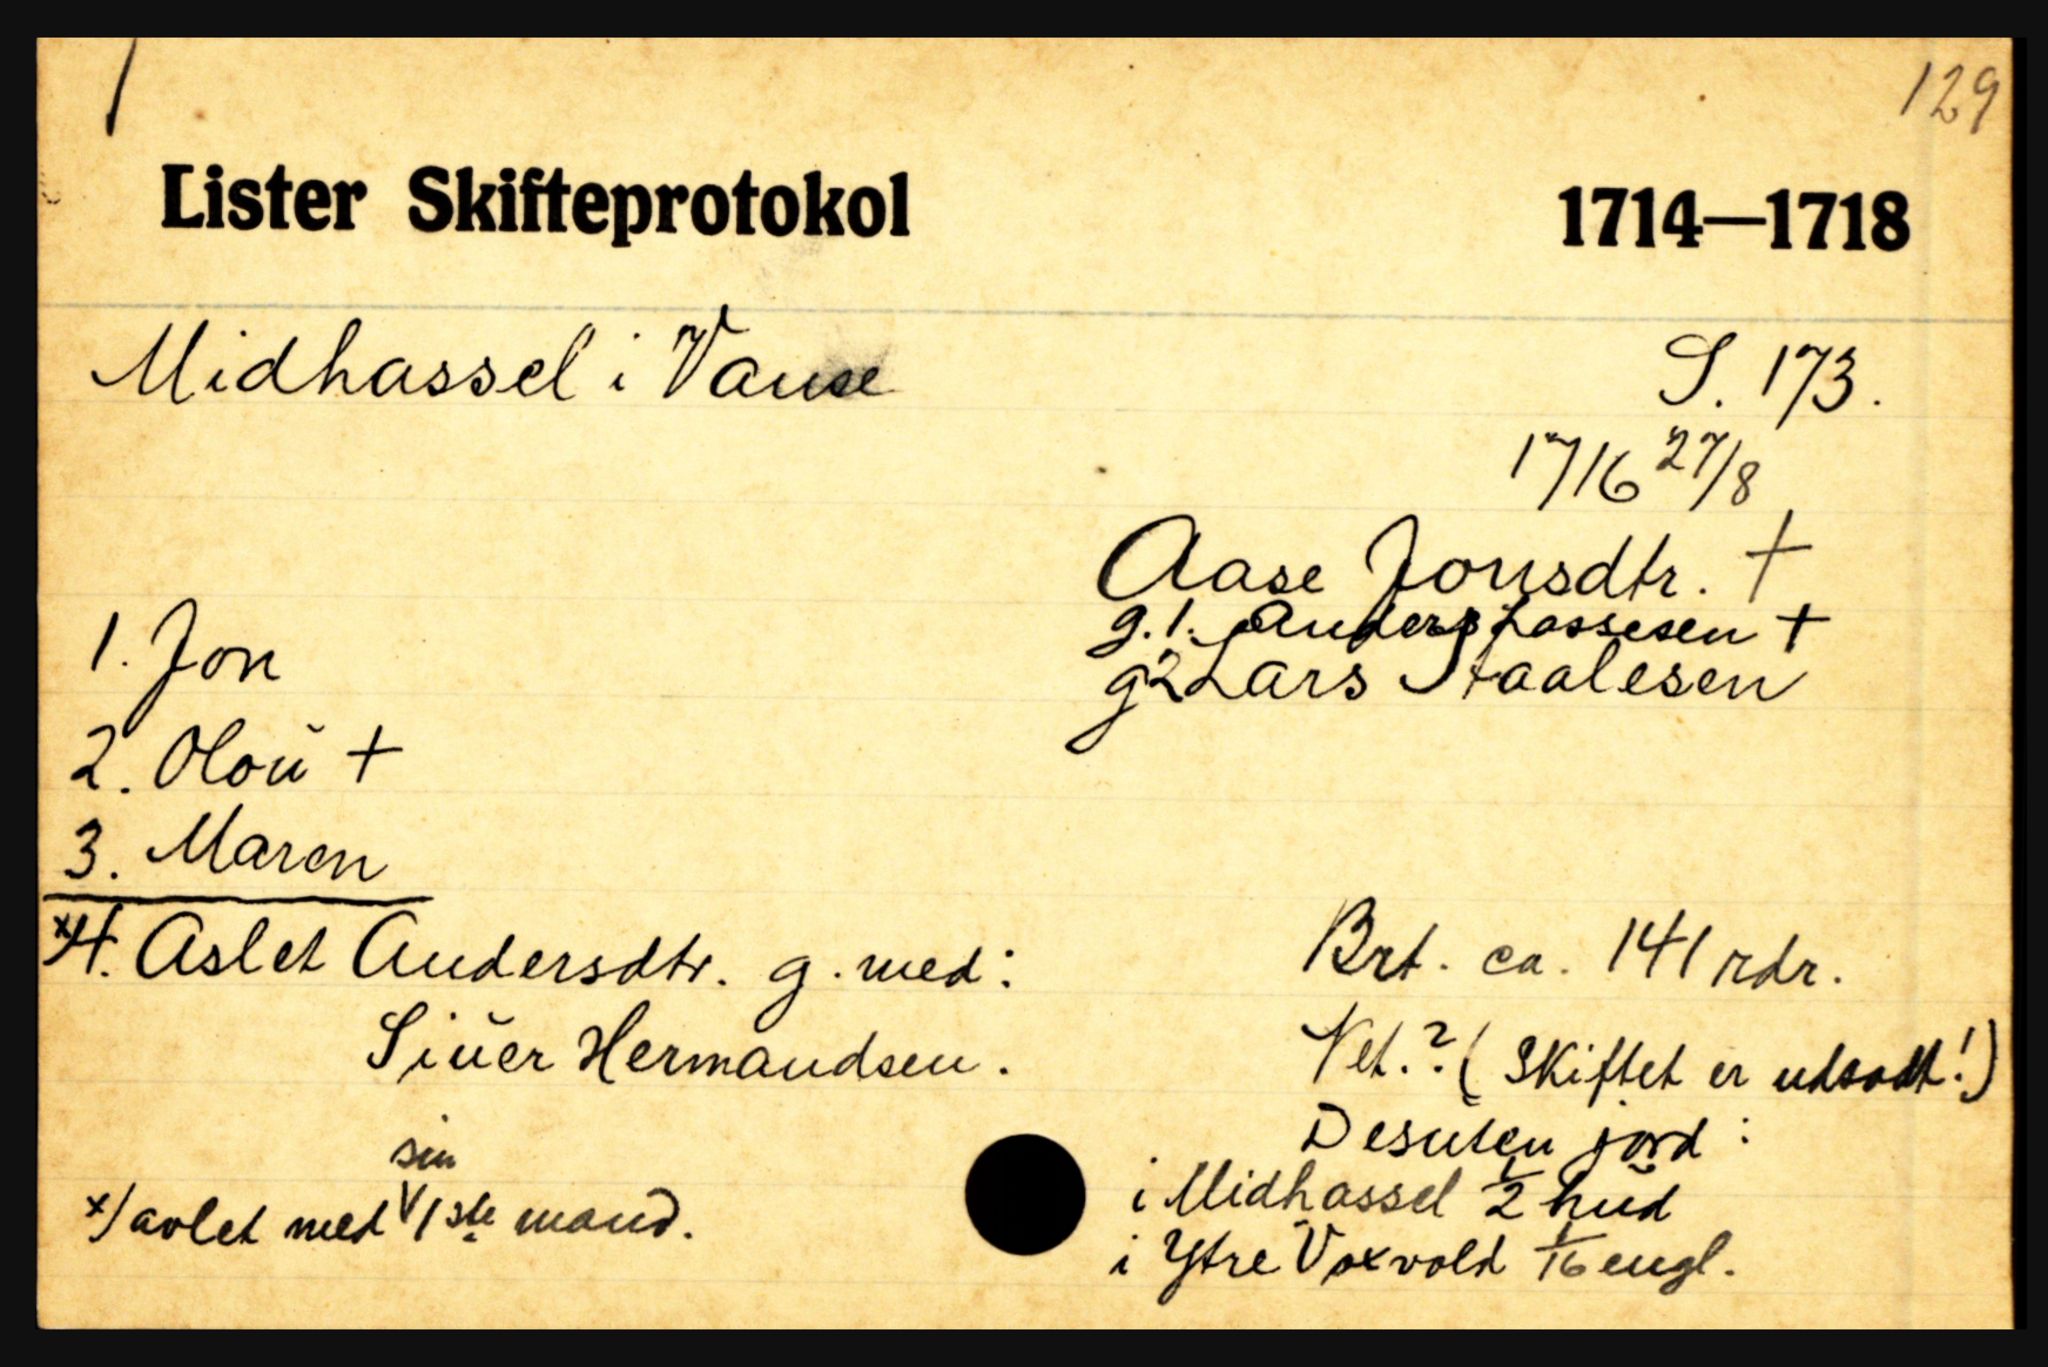 129
Lister Skifteprotokol 1714—1718
Midhassel i Vanse S. 173.
1716 27/8
Aase Jonsdtr. †
g.1. Anders Lassesen †
g2 Lars Staalesen
1. Jon
2. Oloŭ †
3. Maren
x4. Aslet Andersdtr. g. med:
Siŭer Hermandsen.
x) avlet med sin 1ste mand.
Brt. ca. 141 rdr.
Net.? (Skiftet er utsodt!)
Desuten jord:
i Midhassel 1/2 hŭd
i Ytre Voxvold 1/16 engl.